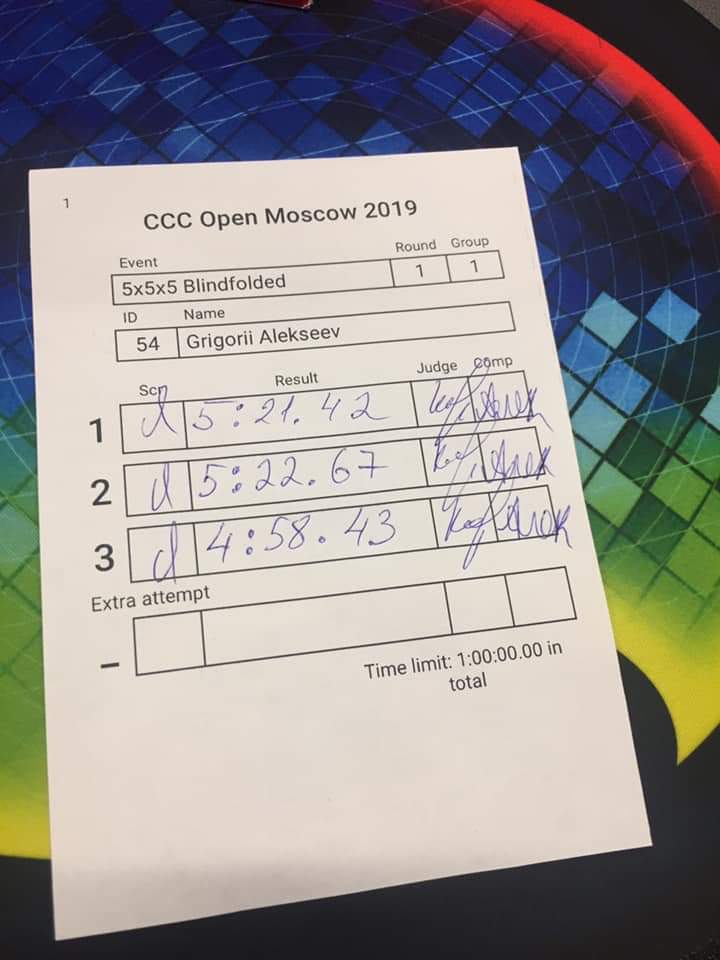 1
CCC Open Moscow 2019
Event Round Group
5x5x5 Blindfolded 1 1
ID Name
54 Grigorii Alekseev
Scr Result Judge Comp
1 5:21.42
2 5:22.67
3 4:58.43
Extra attempt
–
Time limit: 1:00:00.00 in
total